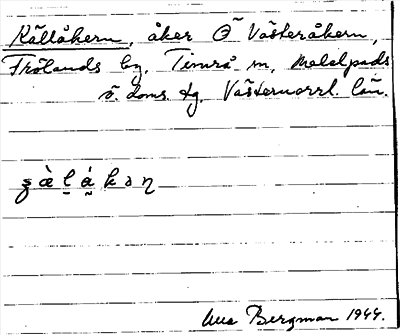 Källåkern, åker Ö Västeråkern,
Frölands by, Timrå sn, Medelpads
ö. doms. tg. Västernorrl. län.
Bergman 1944.